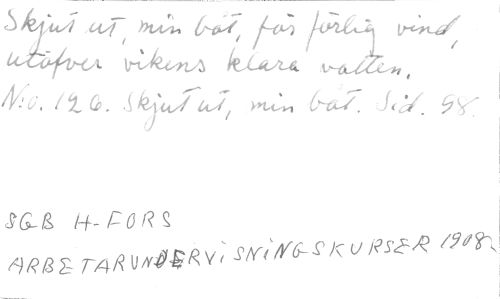 Skjut ut, min båt, för förlig vind,
utöfver vikens klara vatten.
N:o. 126. Skjut ut, min båt. Sid. 98.
SGB H-FORS
ARBETARUNDERVISNINGSKURSER 1908